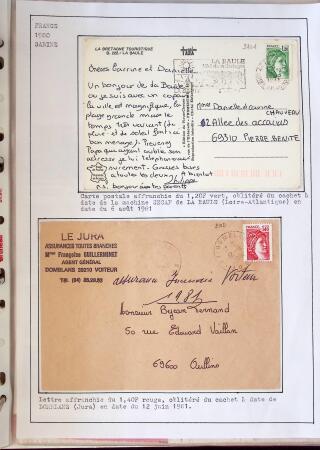 FRANCE
1980
SABINE
LA BRETAGNE TOURISTIQUE
LA BAULE
Chères Corinne et Danielle
Un bonjour de La Baule
où je suis avec un copain
la ville est magnifique, la
plage grande mais le
temps très variant (de la
pluie et du soleil
bon ménage).
Papa qui ayant oublié son
adresse je lui téléphonerai
surement. Grosses bises
à toutes les deux. A bientôt
Philippe
P.S. Bonjour à tes parents
Danielle Corinne
CHAUVEAU
12 Allée des
69310 PIERRE BENITE
Carte postale affranchie du 1,20F vert, oblitéré du cachet à
date de la machine SECAP de LA BAULE (Loire-Atlantique) en
date du 6 août 1981
LE JURA
ASSURANCES TOUTES BRANCHES
Mme Françoise GUILLERMINET
AGENT GÉNÉRAL
DOMBLANS 39210 VOITEUR
assurance Incendie Voiteur
1981
Monsieur Bernand
50 rue Edouard Vaillan
69600 Oullins
Lettre affranchie du 1,40F rouge, oblitéré du cachet à date de
DOMBLANS (Jura) en date du 12 juin 1981.